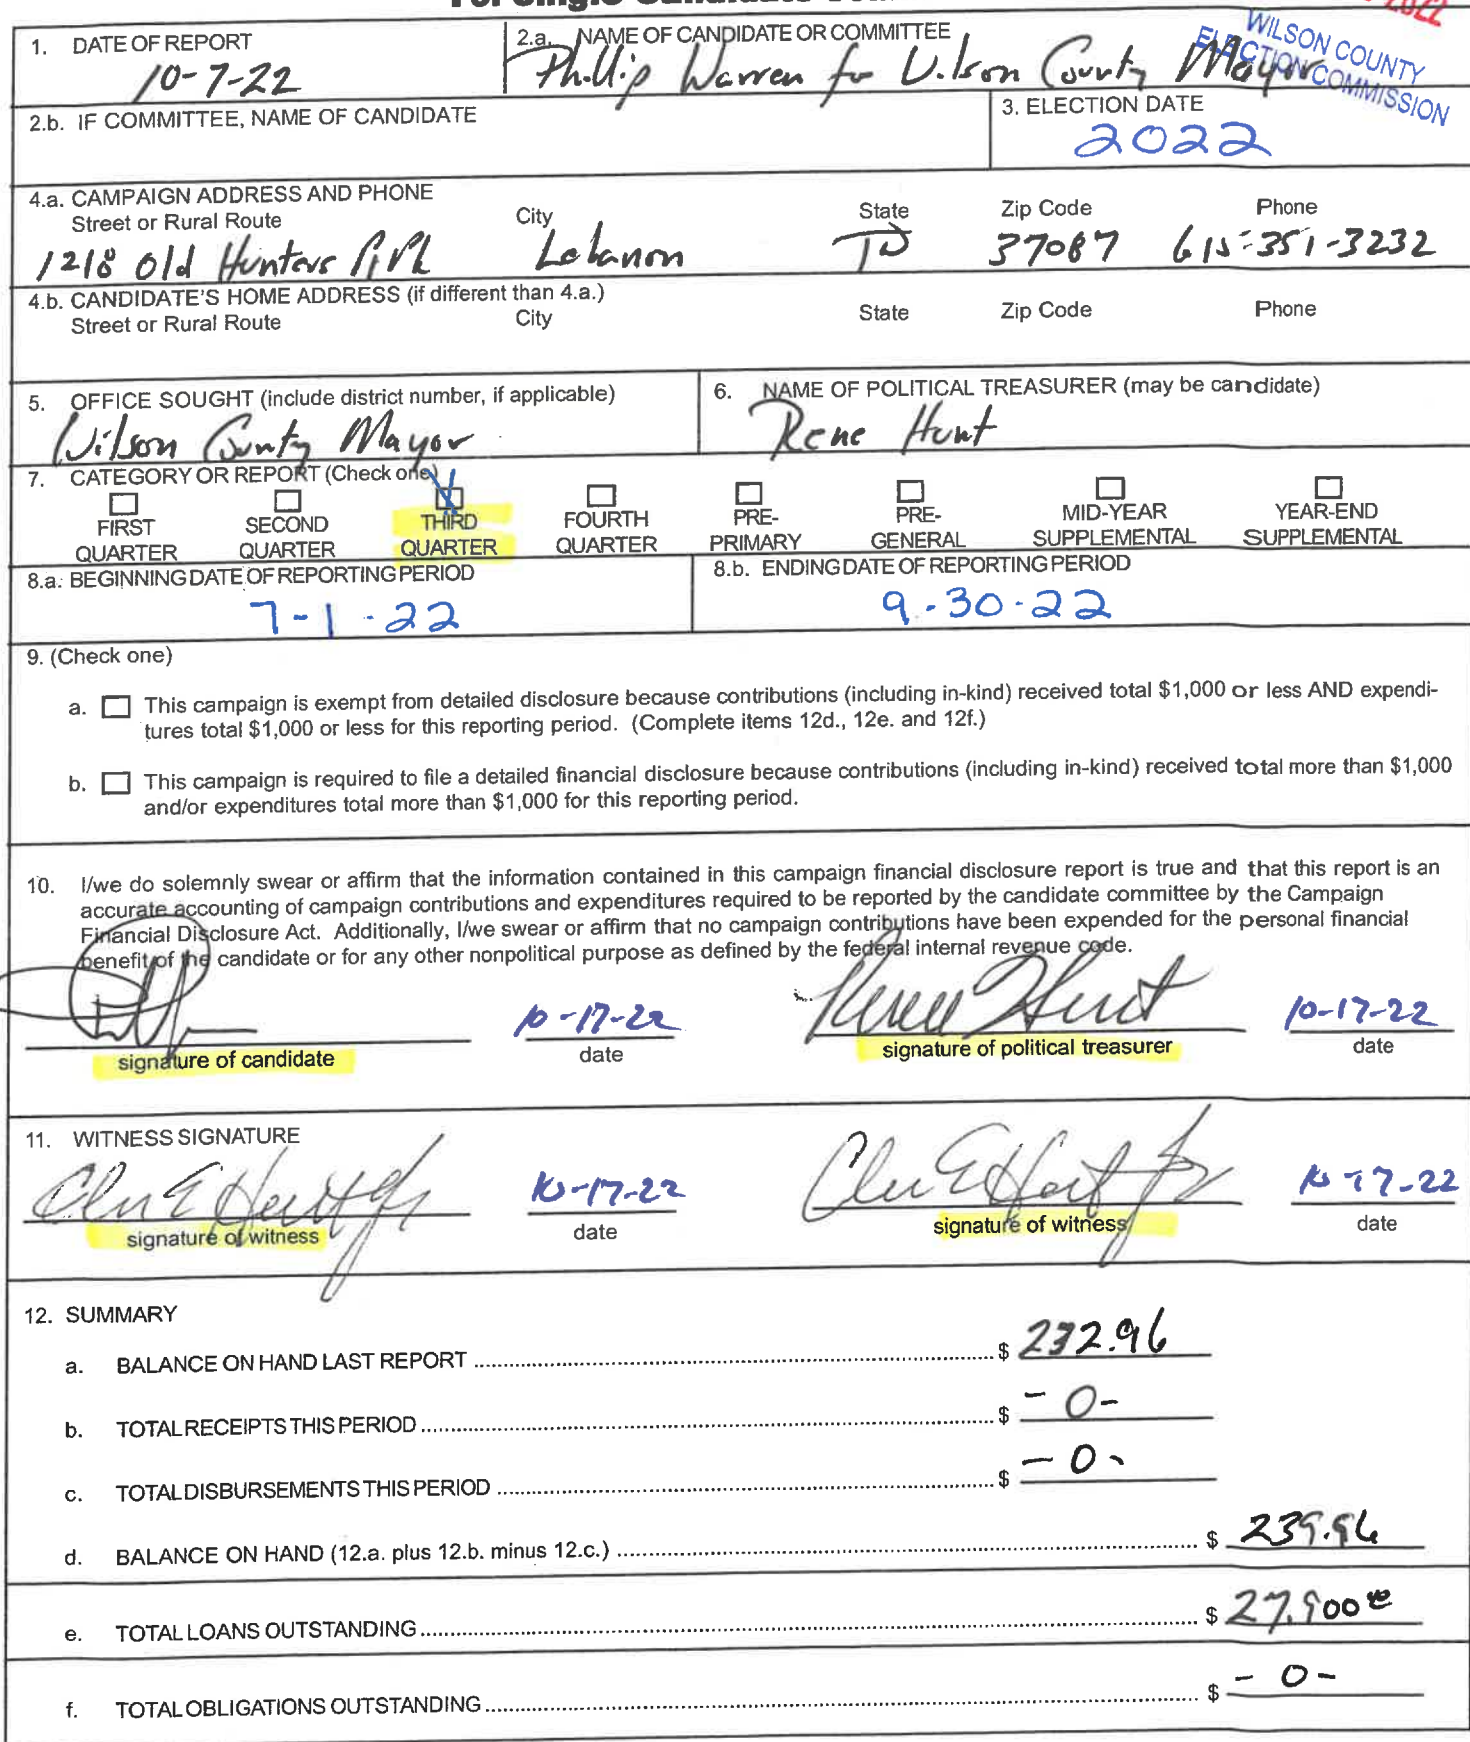 For Single Candidate
2022
WILSON COUNTY
ELECTION COMMISSION
1. DATE OF REPORT
10-7-22
2.a. NAME OF CANDIDATE OR COMMITTEE
Phillip Warren for Wilson County Mayor
2.b. IF COMMITTEE, NAME OF CANDIDATE
3. ELECTION DATE
2022
4.a. CAMPAIGN ADDRESS AND PHONE
Street or Rural Route City State Zip Code Phone
1218 Old Hunters Lebanon TN 37087 615-351-3232
4.b. CANDIDATE'S HOME ADDRESS (if different than 4.a.)
Street or Rural Route City State Zip Code Phone
5. OFFICE SOUGHT (include district number, if applicable)
Wilson County Mayor
6. NAME OF POLITICAL TREASURER (may be candidate)
Rene Hunt
7. CATEGORY OR REPORT (Check one)
FIRST QUARTER
SECOND QUARTER
THIRD QUARTER
FOURTH QUARTER
PRE-PRIMARY
PRE-GENERAL
MID-YEAR SUPPLEMENTAL
YEAR-END SUPPLEMENTAL
8.a. BEGINNING DATE OF REPORTING PERIOD
7-1-22
8.b. ENDING DATE OF REPORTING PERIOD
9-30-22
9. (Check one)
a. This campaign is exempt from detailed disclosure because contributions (including in-kind) received total $1,000 or less AND expendi-
tures total $1,000 or less for this reporting period. (Complete items 12d., 12e. and 12f.)
b. This campaign is required to file a detailed financial disclosure because contributions (including in-kind) received total more than $1,000
and/or expenditures total more than $1,000 for this reporting period.
10. I/we do solemnly swear or affirm that the information contained in this campaign financial disclosure report is true and that this report is an
accurate accounting of campaign contributions and expenditures required to be reported by the candidate committee by the Campaign
Financial Disclosure Act. Additionally, I/we swear or affirm that no campaign contributions have been expended for the personal financial
benefit of the candidate or for any other nonpolitical purpose as defined by the federal internal revenue code.
10-17-22 Rene Hunt 10-17-22
signature of candidate date signature of political treasurer date
11. WITNESS SIGNATURE
10-17-22 10-17-22
signature of witness date signature of witness date
12. SUMMARY
a. BALANCE ON HAND LAST REPORT $ 232.96
b. TOTAL RECEIPTS THIS PERIOD $ -0-
c. TOTAL DISBURSEMENTS THIS PERIOD $ -0-
d. BALANCE ON HAND (12.a. plus 12.b. minus 12.c.) $ 239.96
e. TOTAL LOANS OUTSTANDING $ 27,900
f. TOTAL OBLIGATIONS OUTSTANDING $ -0-